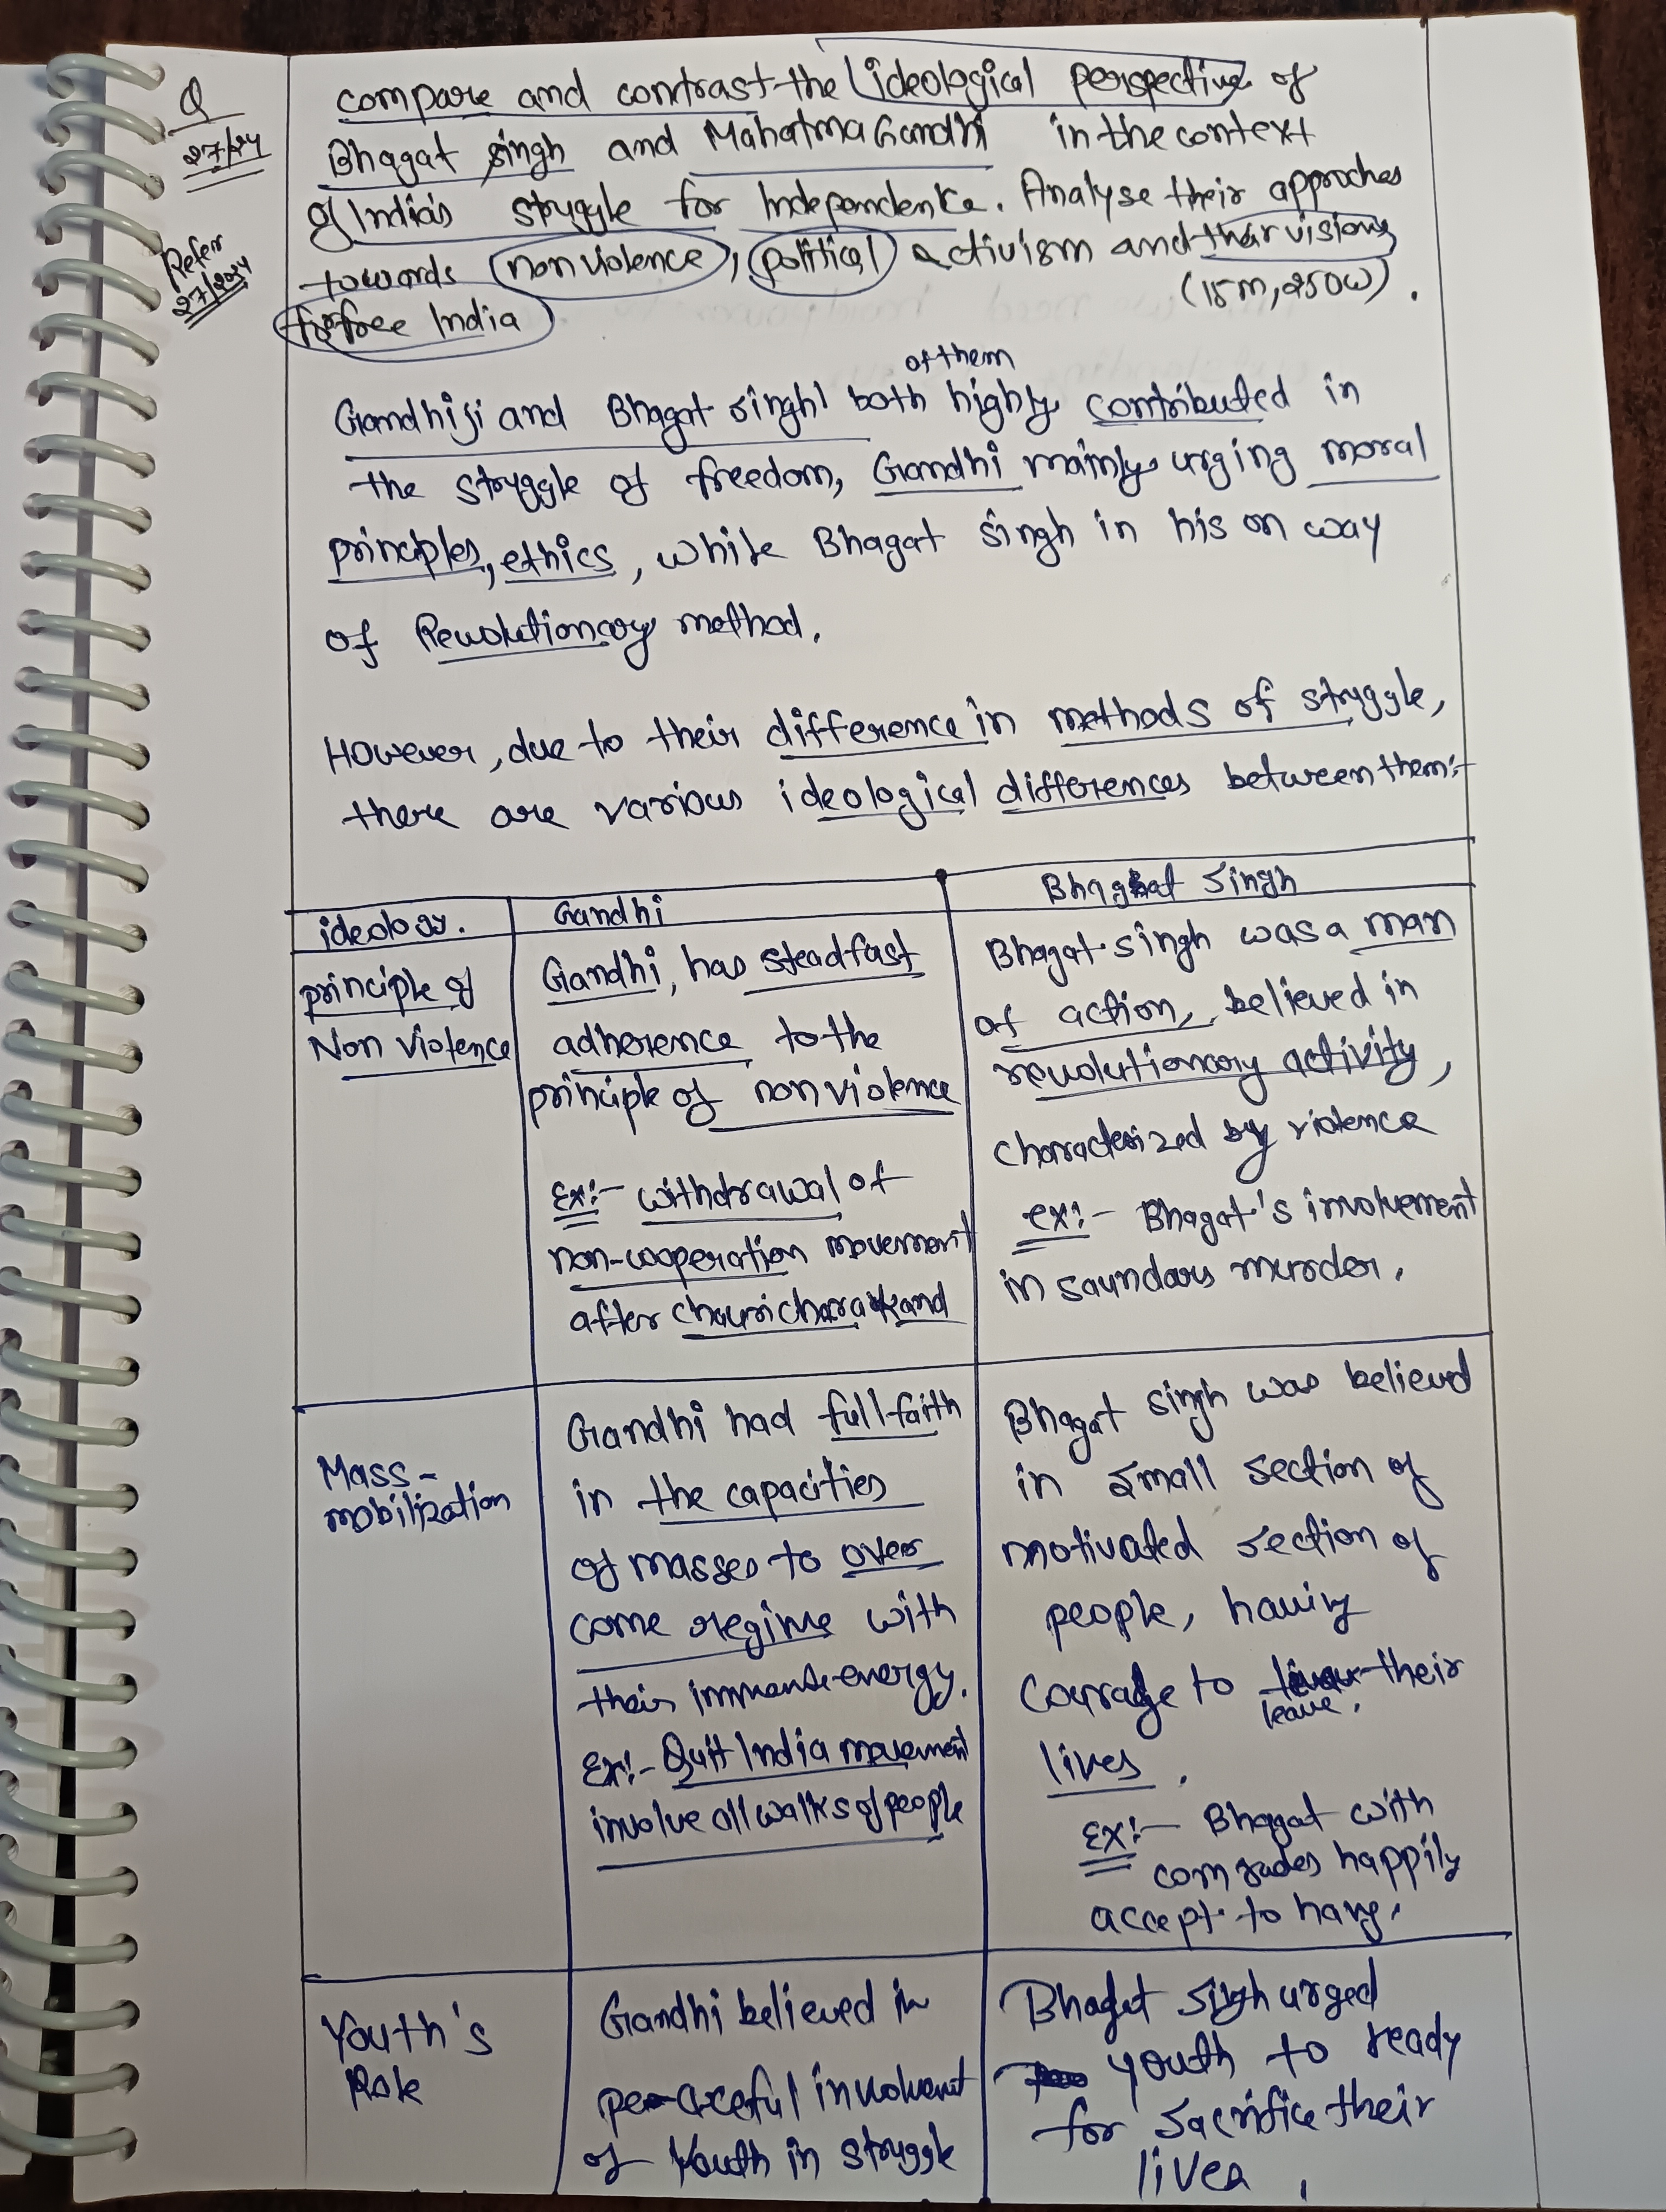 Q
27/24
Refer
27/2024
compare and contrast the ideological perspective of
Bhagat singh and Mahatma Gandhi in the context
of India's struggle for Independence. Analyse their approches
towards non violence, political activism and their visions
for free India (15m, 250W).
Gandhiji and Bhagat singh both of them highly contributed in
the struggle of freedom, Gandhi mainly urging moral
principles, ethics, while Bhagat singh in his on way
of Revolutionary method.
However, due to their difference in methods of struggle,
there are various ideological differences between them:-
ideology. Gandhi Bhagat Singh
principle of
Non violence
Gandhi, has steadfast
adherence to the
principle of non violence
Ex:- withdrawal of
non-cooperation movement
after chaurichara kand
Bhagat singh was a man
of action, believed in
revolutionary activity,
characterized by violence
ex:- Bhagat's involvement
in saundars murder.
Mass-
mobilization
Gandhi had full faith
in the capacities
of masses to over
come regime with
their immense energy.
Ex:- Quit India movement
involve all walks of people
Bhagat singh was believed
in small section of
motivated section of
people, having
courage to leave their
lives.
Ex:- Bhagat with
comrades happily
accept to hang.
Youth's
Role
Gandhi believed in
peaceful involvent
of Youth in struggle
Bhagat singh urged
youth to ready
for sacrifice their
lives.